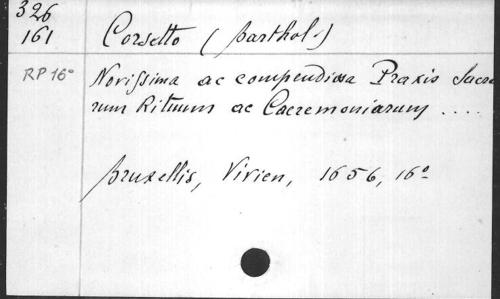 326
161 Corsetto (Barthol.)
RP 16° Novissima ac compendiosa Praxis Sacro
rum Rituum ac Caeremoniarum ....
Bruxellis, Vivien, 1656, 16°